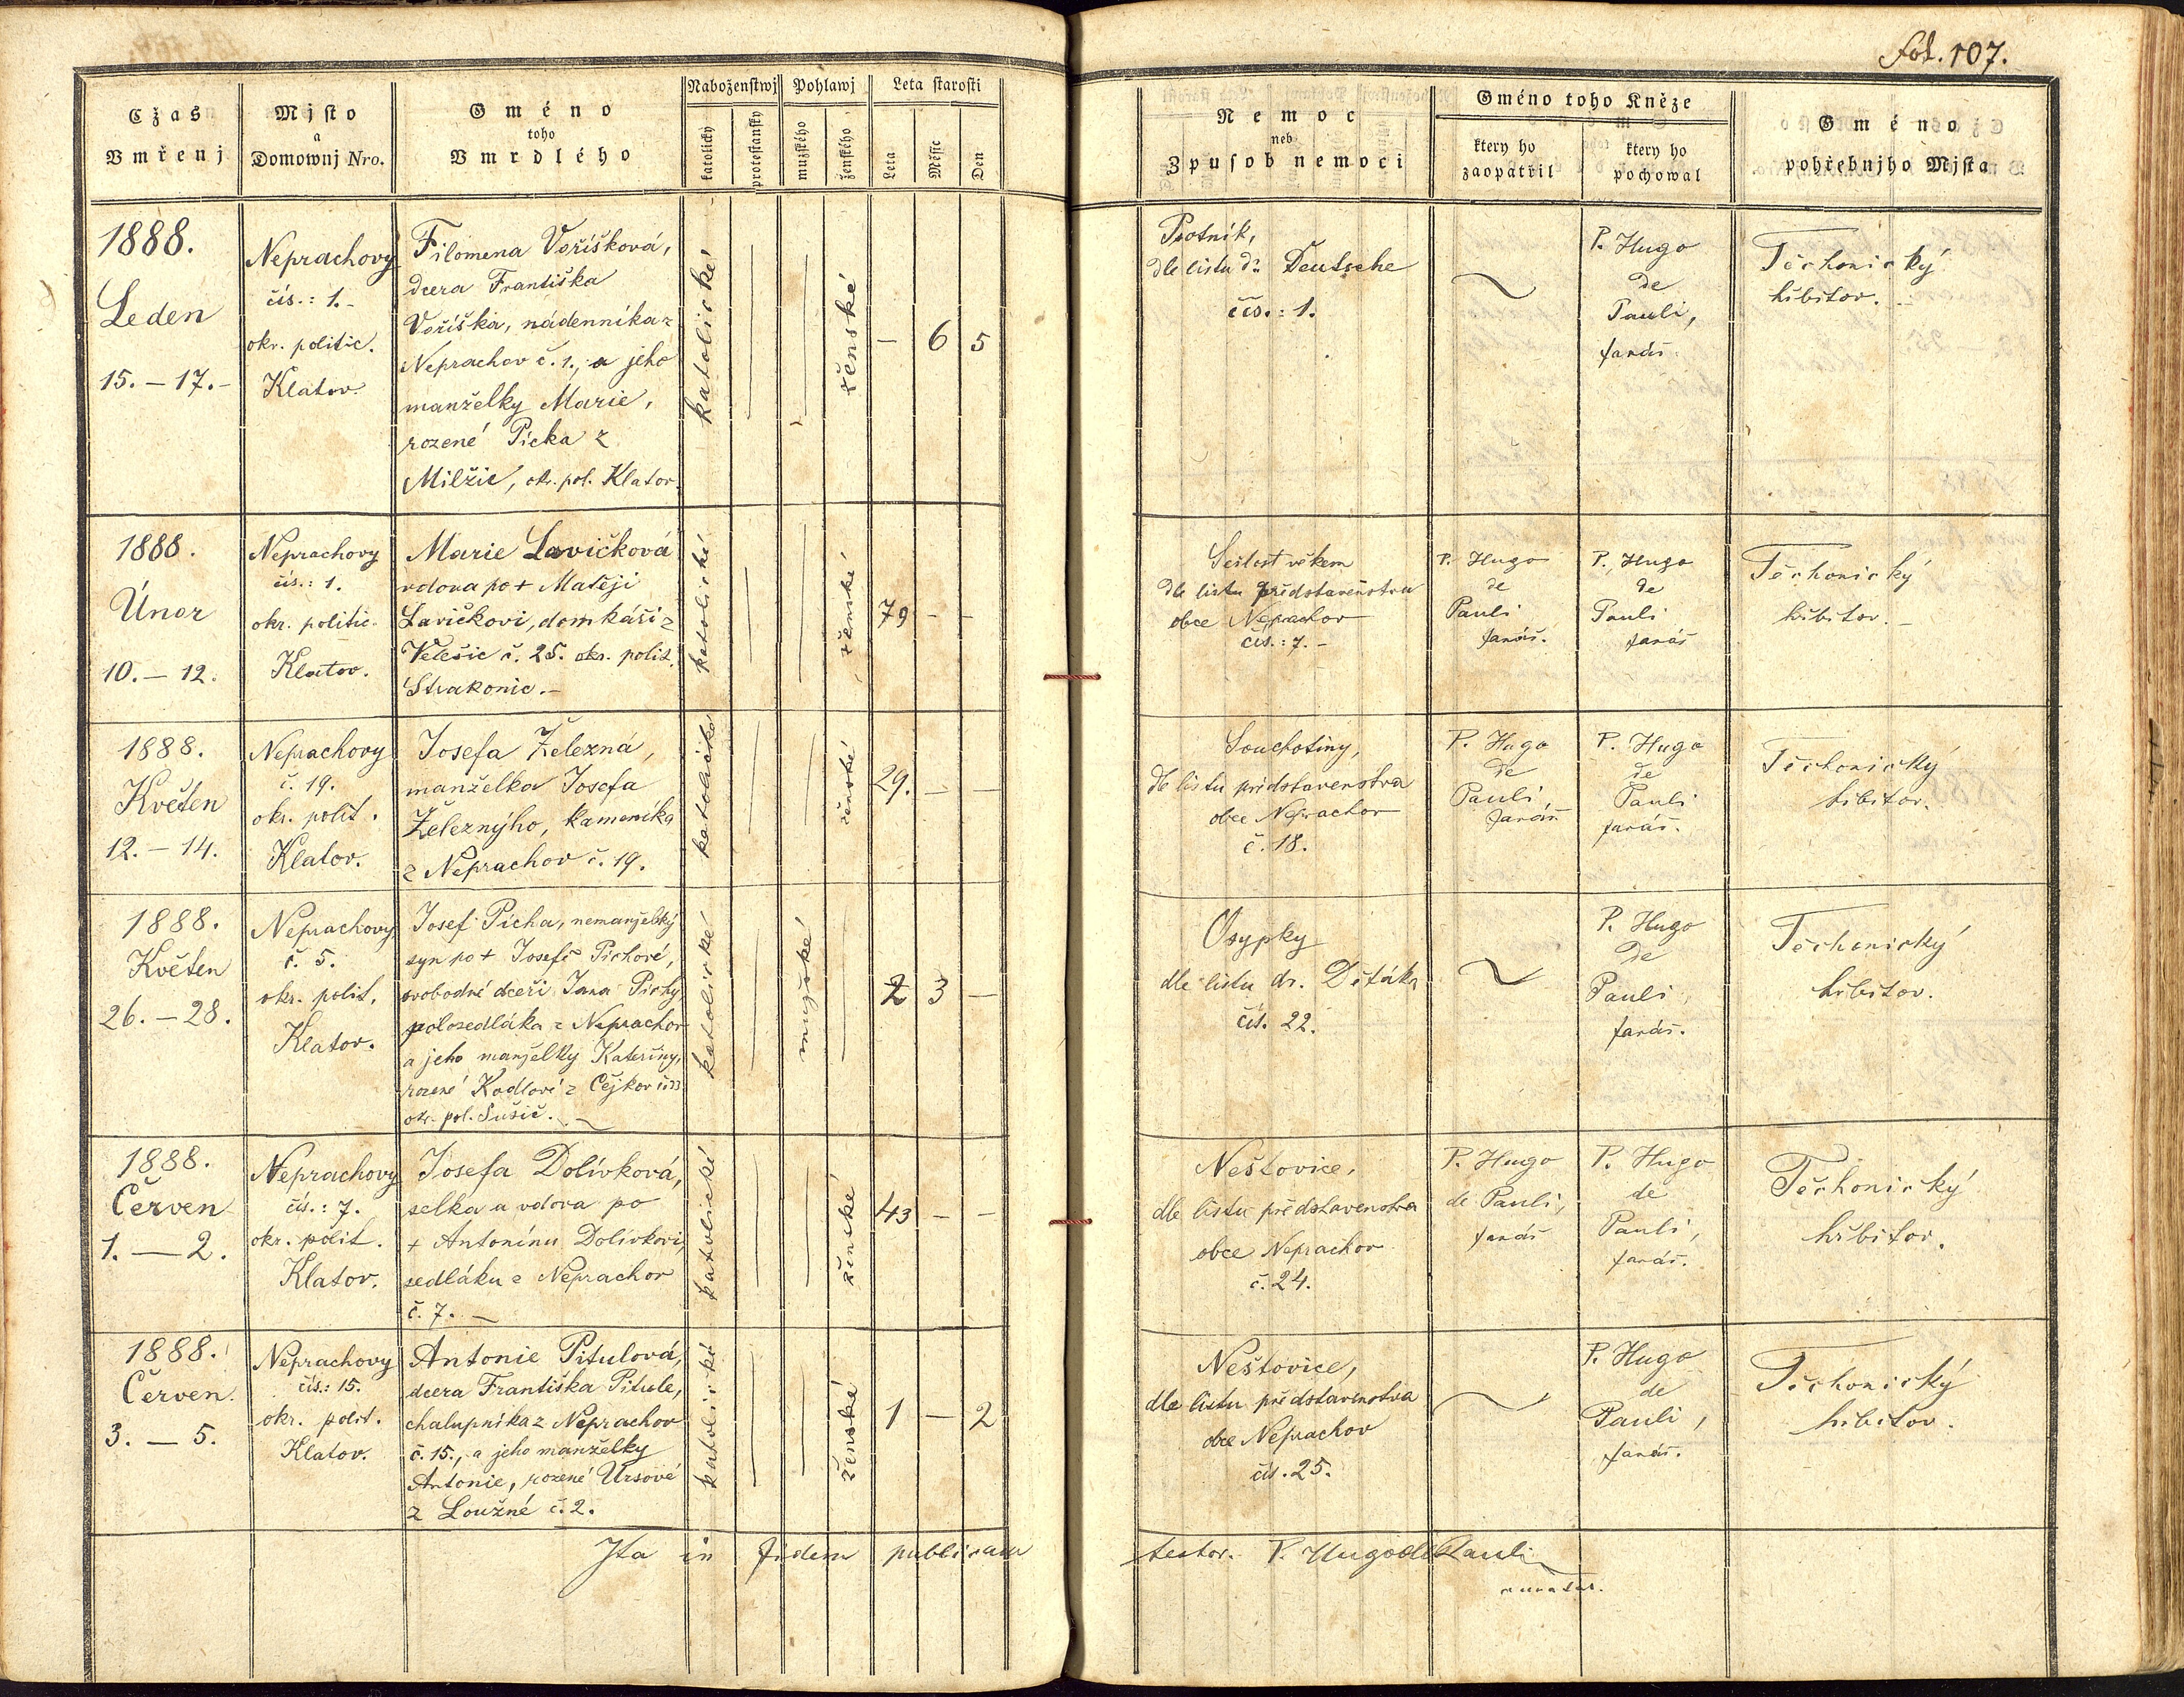 Fol. 107.
Cžas
Vmřenj
Mjsto
a
Domownj Nro.
Gméno
toho
Vmrdlého
Náboženstwj
katolický
protestanský
Pohlawj
mužského
ženského
Leta starosti
Leta
Měsýc
Den
Nemoc
neb
Zpusob nemoci
Gméno toho Kněze
který ho
zaopatřil
který ho
pochowal
Gméno
pohřebnjho Mjsta
1888.
Leden
15. – 17. –
Neprachovy
čís.: 1. –
okr. politic.
Klatov.
Filomena Voříšková,
dcera Františka
Voříška, nádenníka z
Neprachov č. 1., a jeho
manželky Marie,
rozené Picka z
Milžic, okr. pol. Klatov.
katolické
ženské
– 6 5
Psotník,
dle listu dra Deutsche
čís.: 1.
P. Hugo
de
Pauli,
farář.
Těchonický
hřbitov. –
1888.
Únor
10. – 12.
Neprachovy
čís.: 1.
okr. politic.
Klatov.
Marie Lavičková
vdova po + Matěji
Lavičkovi, domkáři z
Velešic č. 25. okr. polit.
Strakonic. –
katolické
ženské
79 – –
Sešlost věkem
dle listu představenstva
obce Neprachov
čís.: 7. –
P. Hugo
de
Pauli
farář.
P. Hugo
de
Pauli
farář
Těchonický
hřbitov. –
1888.
Květen
12. – 14.
Neprachovy
č. 19.
okr. polit.
Klatov.
Josefa Železná,
manželka Josefa
Železnýho, kameníka
z Neprachov č. 19.
katolické
ženské
29. – –
Souchotiny,
dle listu představenstva
obce Neprachov
č. 18.
P. Hugo
de
Pauli,
farář
P. Hugo
de
Pauli
farář.
Těchonický
hřbitov.
1888.
Květen
26. – 28.
Neprachovy
č. 5.
okr. polit.
Klatov.
Josef Pícha, nemanželský
syn po + Josefě Píchové,
svobodné dceři Jana Píchy
polosedláka z Neprachov
a jeho manželky Kateřiny,
rozené Kadlové z Čejkov
okr. pol. Sušic. –
katolické
mužské
2 3 –
Osypky
dle listu dr.
čís. 22.
P. Hugo
de
Pauli,
farář.
Těchonický
hřbitov.
1888.
Červen
1. – 2.
Neprachovy
čís.: 7.
okr. polit.
Klatov.
Josefa Dolívková,
selka a vdova po
+ Antonínu Dolívkovi,
sedláku z Neprachov
č. 7. –
katolické
ženské
43 – –
Neštovice,
dle listu představenstva
obce Neprachov
č. 24.
P. Hugo
de Pauli,
farář
P. Hugo
de
Pauli,
farář.
Těchonický
hřbitov.
1888.
Červen
3. – 5.
Neprachovy
čís.: 15.
okr. polit.
Klatov.
Antonie Pitulová,
dcera Františka Pitule,
chalupníka z Neprachov
č. 15., a jeho manželky
Antonie, rozené Ursové
z Loužné č. 2.
katolické
ženské
1 – 2
Neštovice,
dle listu představenstva
obce Neprachov
čís. 25.
P. Hugo
de
Pauli,
farář.
Těchonický
hřbitov.
Ita in fidem publicam testor. P. Hugo de Pauli
curatus.